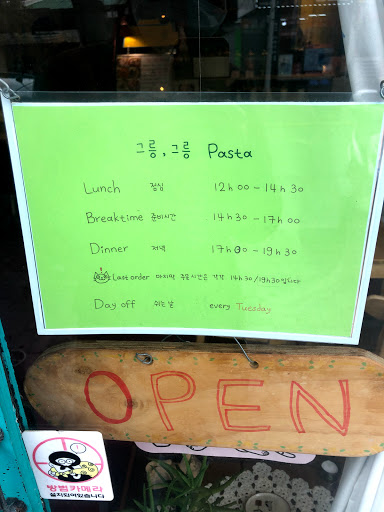 그릉, 그릉 Pasta
Lunch 점심 12h00 - 14h30
Breaktime 준비시간 14h30 - 17h00
Dinner 저녁 17h00 - 19h30
Last order 마지막 주문시간은 각각 14h30/19h30입니다
Day off 쉬는날 every Tuesday
OPEN
방범카메라
설치되어있습니다